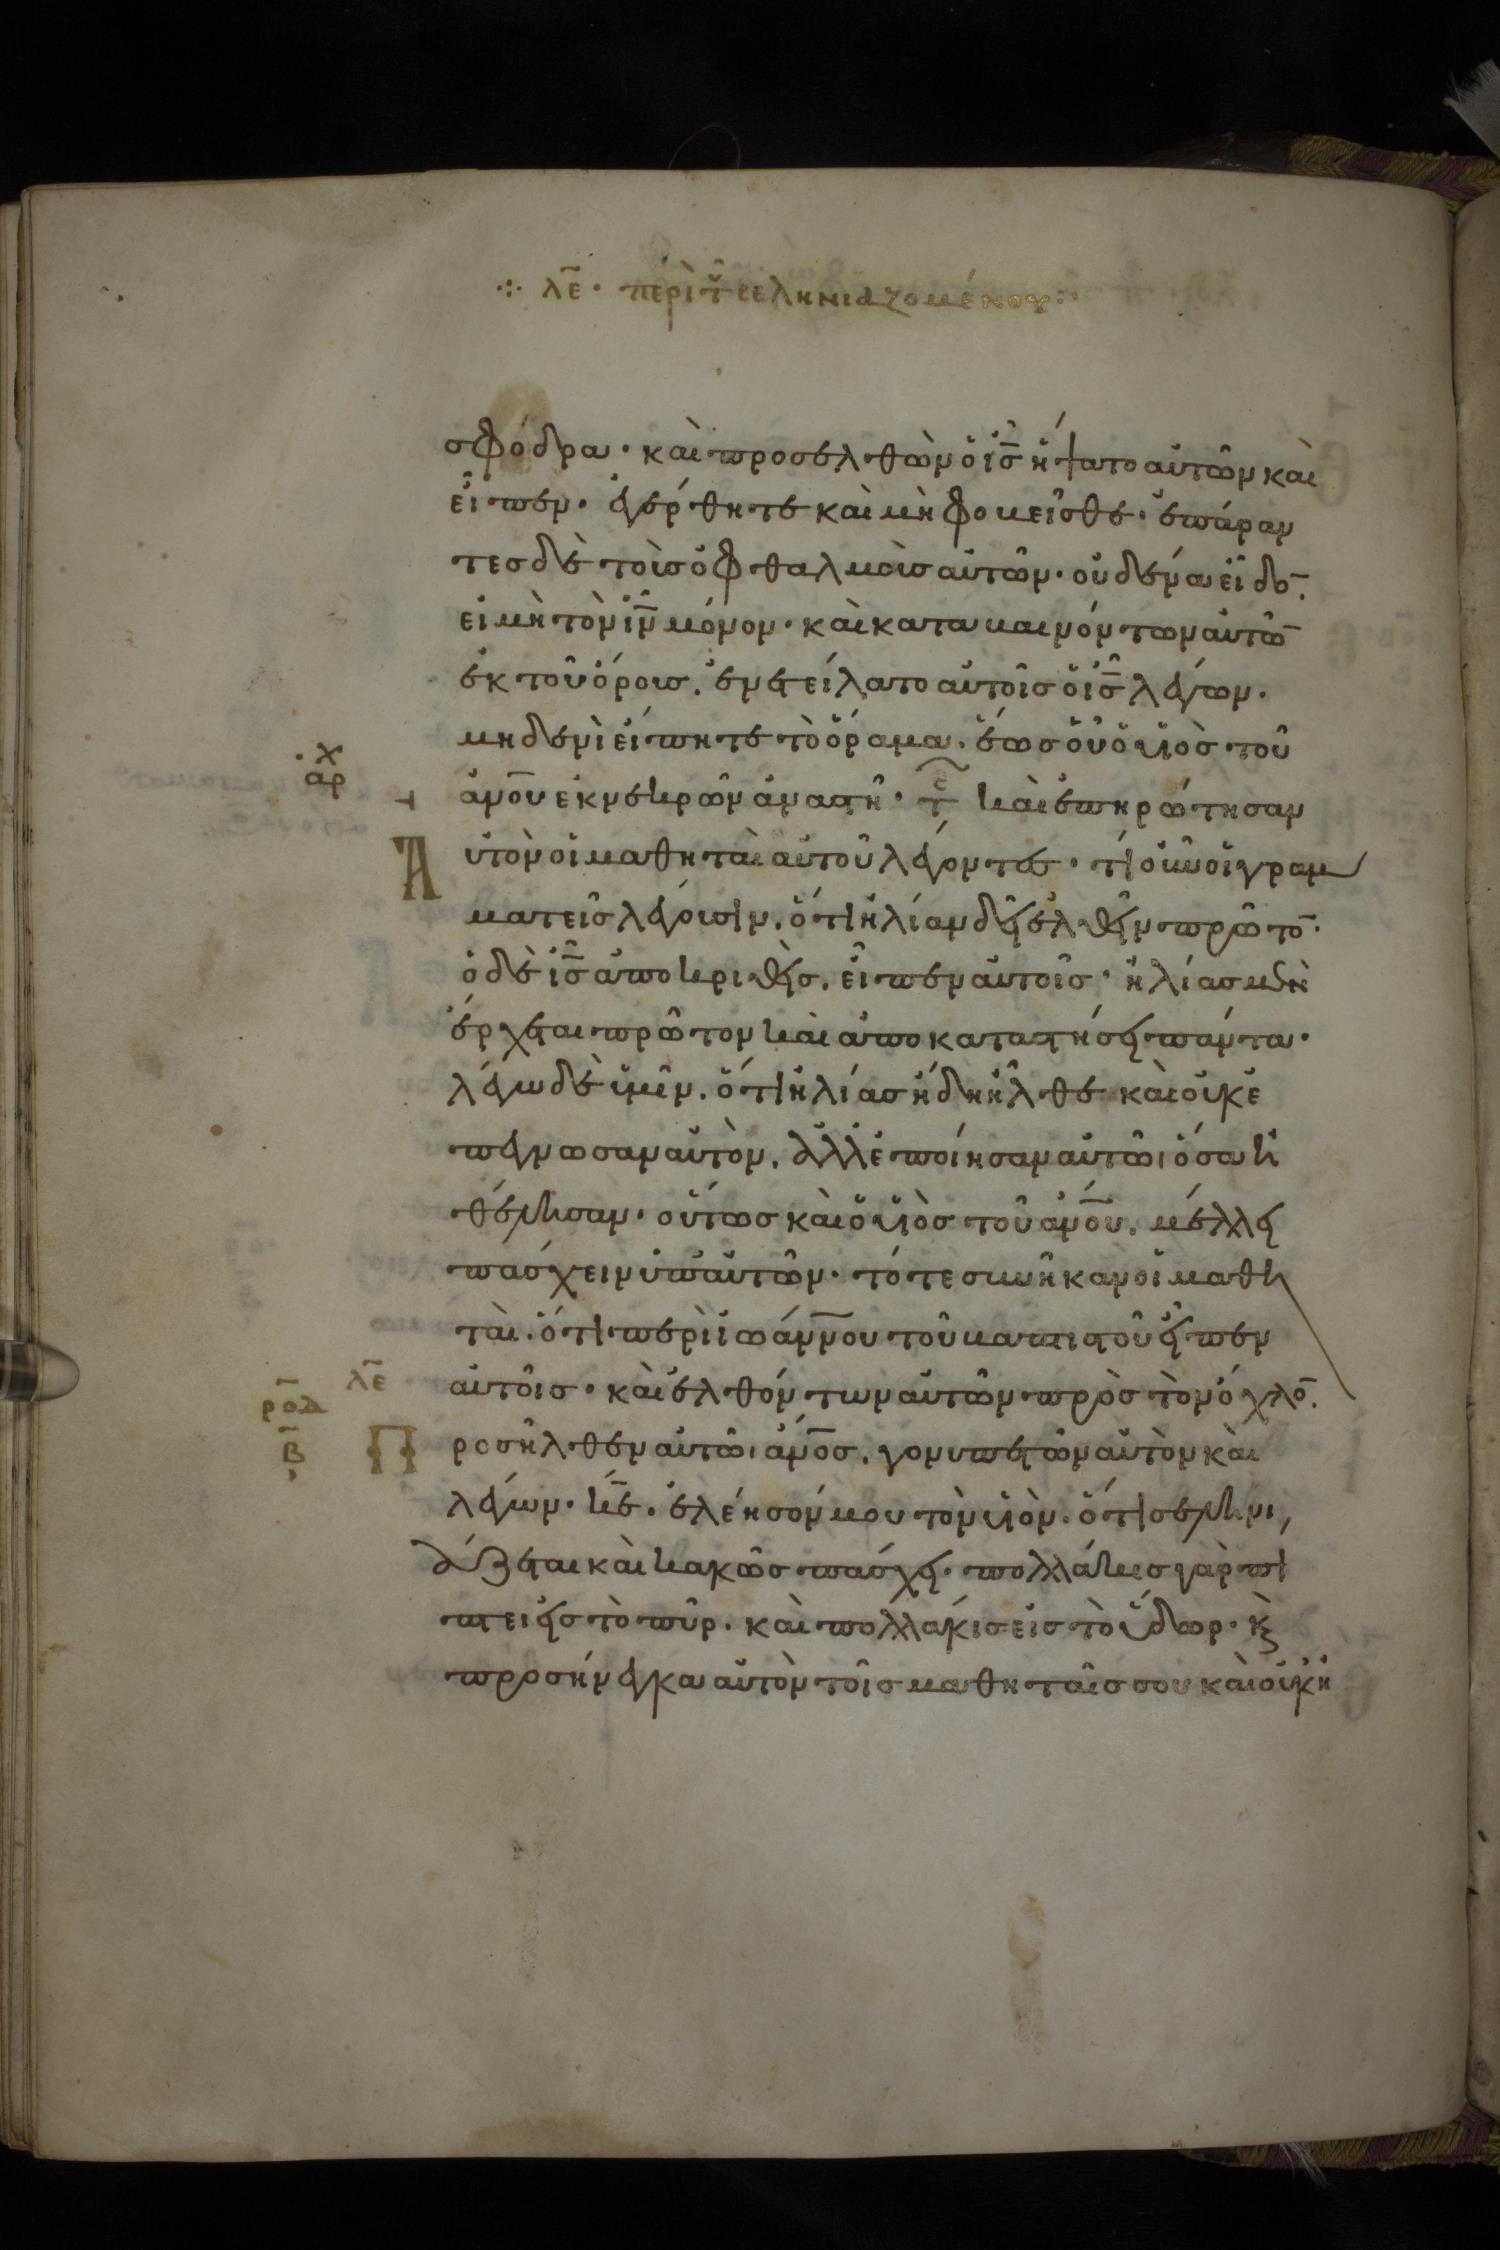 λε̅ · περὶ τ̑ σεληνιαζομένου
σφόδρα · καὶ προσελθὼν ὁ ις̅ ἥψατο αὐτῶν καὶ
εἶπεν · ἐγέρθητε καὶ μὴ φοβεῖσθε · ἐπάραν
τες δὲ τοὺς ὀφθαλμοὺς αὐτῶν · οὐδένα εἶδο̅ ·
εἰ μὴ τὸν ιν̅ μόνον · καὶ καταβαινόντων αὐτῶ̅
ἐκ τοῦ ὄρους, ἐνετείλατο αὐτοῖς ὁ ις̅ λέγων ·
μηδενὶ εἴπητε τὸ ὅραμα, ἕως οὗ ὁ υἱὸς τοῦ
χ
αρ
ἀν̅ου ἐκ νεκρῶν ἀναστῆ · τ̅ε καὶ ἐπηρώτησαν
Α
ὐτὸν οἱ μαθηταὶ αὐτοῦ λέγοντες · τί οὖν οἱ γραμ
ματεῖς λέγουσιν, ὅτι ἠλίαν δεῖ ἐλθεῖν πρῶτο̅ ·
ὁ δὲ ις̅ ἀποκριθεὶς, εἶπεν αὐτοῖς · ἠλίας μὲν
ἔρχεται πρῶτον καὶ ἀποκαταστήσει πάντα ·
λέγω δὲ ὑμῖν, ὅτι ἠλίας ἤδη ἦλθε καὶ οὐκ ἐ
πέγνωσαν αὐτὸν, ἀλλ' ἐποίησαν αὐτῶι ὅσα ἠ
θέλησαν · οὕτως καὶ ὁ υἱὸς τοῦ ἀν̅ου, μέλλει
πάσχειν ὑπ' αὐτῶν · τότε συνῆκαν οἱ μαθη
ταὶ, ὅτι περὶ ἰωάννου τοῦ βαπτιστοῦ εἶπεν
λε̅
αὐτοῖς · καὶ ἐλθόντων αὐτῶν πρὸς τὸν ὄχλο̅ ·
ροδ̅
β̅
Π
ροσῆλθεν αὐτῶι ἀν̅ος, γονυπετῶν αὐτὸν καὶ
λέγων · κ̅ε · ἐλέησόν μου τὸν υἱὸν, ὅτι σεληνι
άζεται καὶ κακῶς πάσχει · πολλάκις γὰρ πί
πτει εἰς τὸ πῦρ · καὶ πολλάκις εἰς τὸ ὕδωρ · κ̀
προσήνεγκα αὐτὸν τοῖς μαθηταῖς σου καὶ οὐκ ἠ